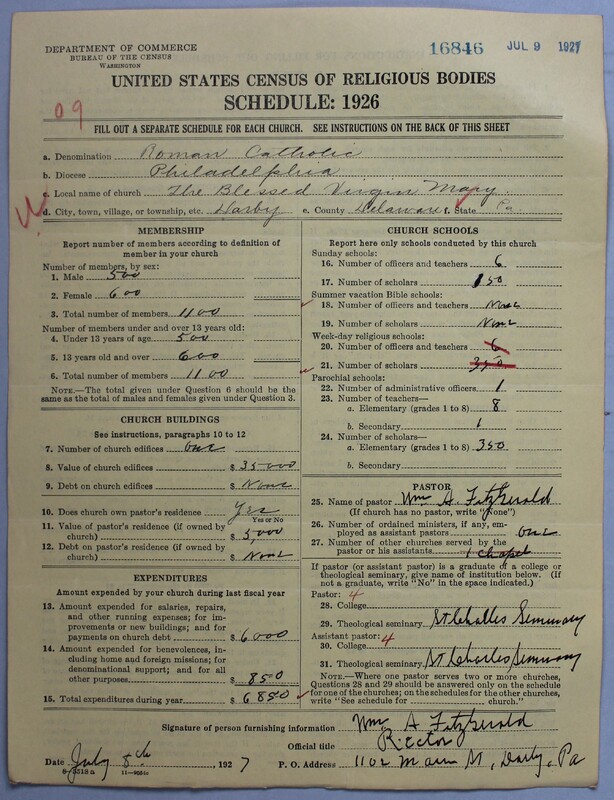 DEPARTMENT OF COMMERCE
BUREAU OF THE CENSUS
WASHINGTON
16846 JUL 9 1927
UNITED STATES CENSUS OF RELIGIOUS BODIES
SCHEDULE: 1926
09
FILL OUT A SEPARATE SCHEDULE FOR EACH CHURCH. SEE INSTRUCTIONS ON THE BACK OF THIS SHEET
a. Denomination Roman Catholic
b. Diocese Philadelphia
c. Local name of church The Blessed Virgin Mary
d. City, town, village, or township, etc. Darby e. County Delaware f. State Pa
MEMBERSHIP
Report number of members according to definition of
member in your church
Number of members, by sex:
1. Male 500
2. Female 600
3. Total number of members 1100
Number of members under and over 13 years old:
4. Under 13 years of age 500
5. 13 years old and over 600
6. Total number of members 1100
NOTE.—The total given under Question 6 should be
the same as the total of males and females given under Question 3.
CHURCH BUILDINGS
See instructions, paragraphs 10 to 12
7. Number of church edifices One
8. Value of church edifices $ 35000
9. Debt on church edifices $ None
10. Does church own pastor's residence Yes
Yes or No
11. Value of pastor's residence (if owned by
church) $ 5000
12. Debt on pastor's residence (if owned by
church) $ None
EXPENDITURES
Amount expended by your church during last fiscal year
13. Amount expended for salaries, repairs,
and other running expenses; for im-
provements or new buildings; and for
payments on church debt $ 6000
14. Amount expended for benevolences, in-
cluding home and foreign missions; for
denominational support; and for all
other purposes $ 850
15. Total expenditures during year $ 6850
CHURCH SCHOOLS
Report here only schools conducted by this church
Sunday schools:
16. Number of officers and teachers 6
17. Number of scholars 150
Summer vacation Bible schools:
18. Number of officers and teachers None
19. Number of scholars None
Week-day religious schools:
20. Number of officers and teachers 6
21. Number of scholars 350
Parochial schools:
22. Number of administrative officers 1
23. Number of teachers—
a. Elementary (grades 1 to 8) 8
b. Secondary 1
24. Number of scholars—
a. Elementary (grades 1 to 8) 350
b. Secondary
PASTOR
25. Name of pastor Wm A. Fitzgerald
(If church has no pastor, write "none")
26. Number of ordained ministers, if any, em-
ployed as assistant pastors One
27. Number of other churches served by the
pastor or his assistants 1 chapel
If pastor (or assistant pastor) is a graduate of a college or
theological seminary, give name of institution below. (If
not a graduate, write "No" in the space indicated.)
Pastor: 4
28. College
29. Theological seminary St Charles Seminary
Assistant pastor: 4
30. College
31. Theological seminary St Charles Seminary
NOTE.—Where one pastor serves two or more churches,
Questions 28 and 29 should be answered only on the schedule
for one of the churches; on the schedules for the other churches,
write "See schedule for church."
Signature of person furnishing information Wm. A Fitzgerald
Official title Rector
Date July 8th, 1927 P. O. Address 1102 Main St, Darby, Pa